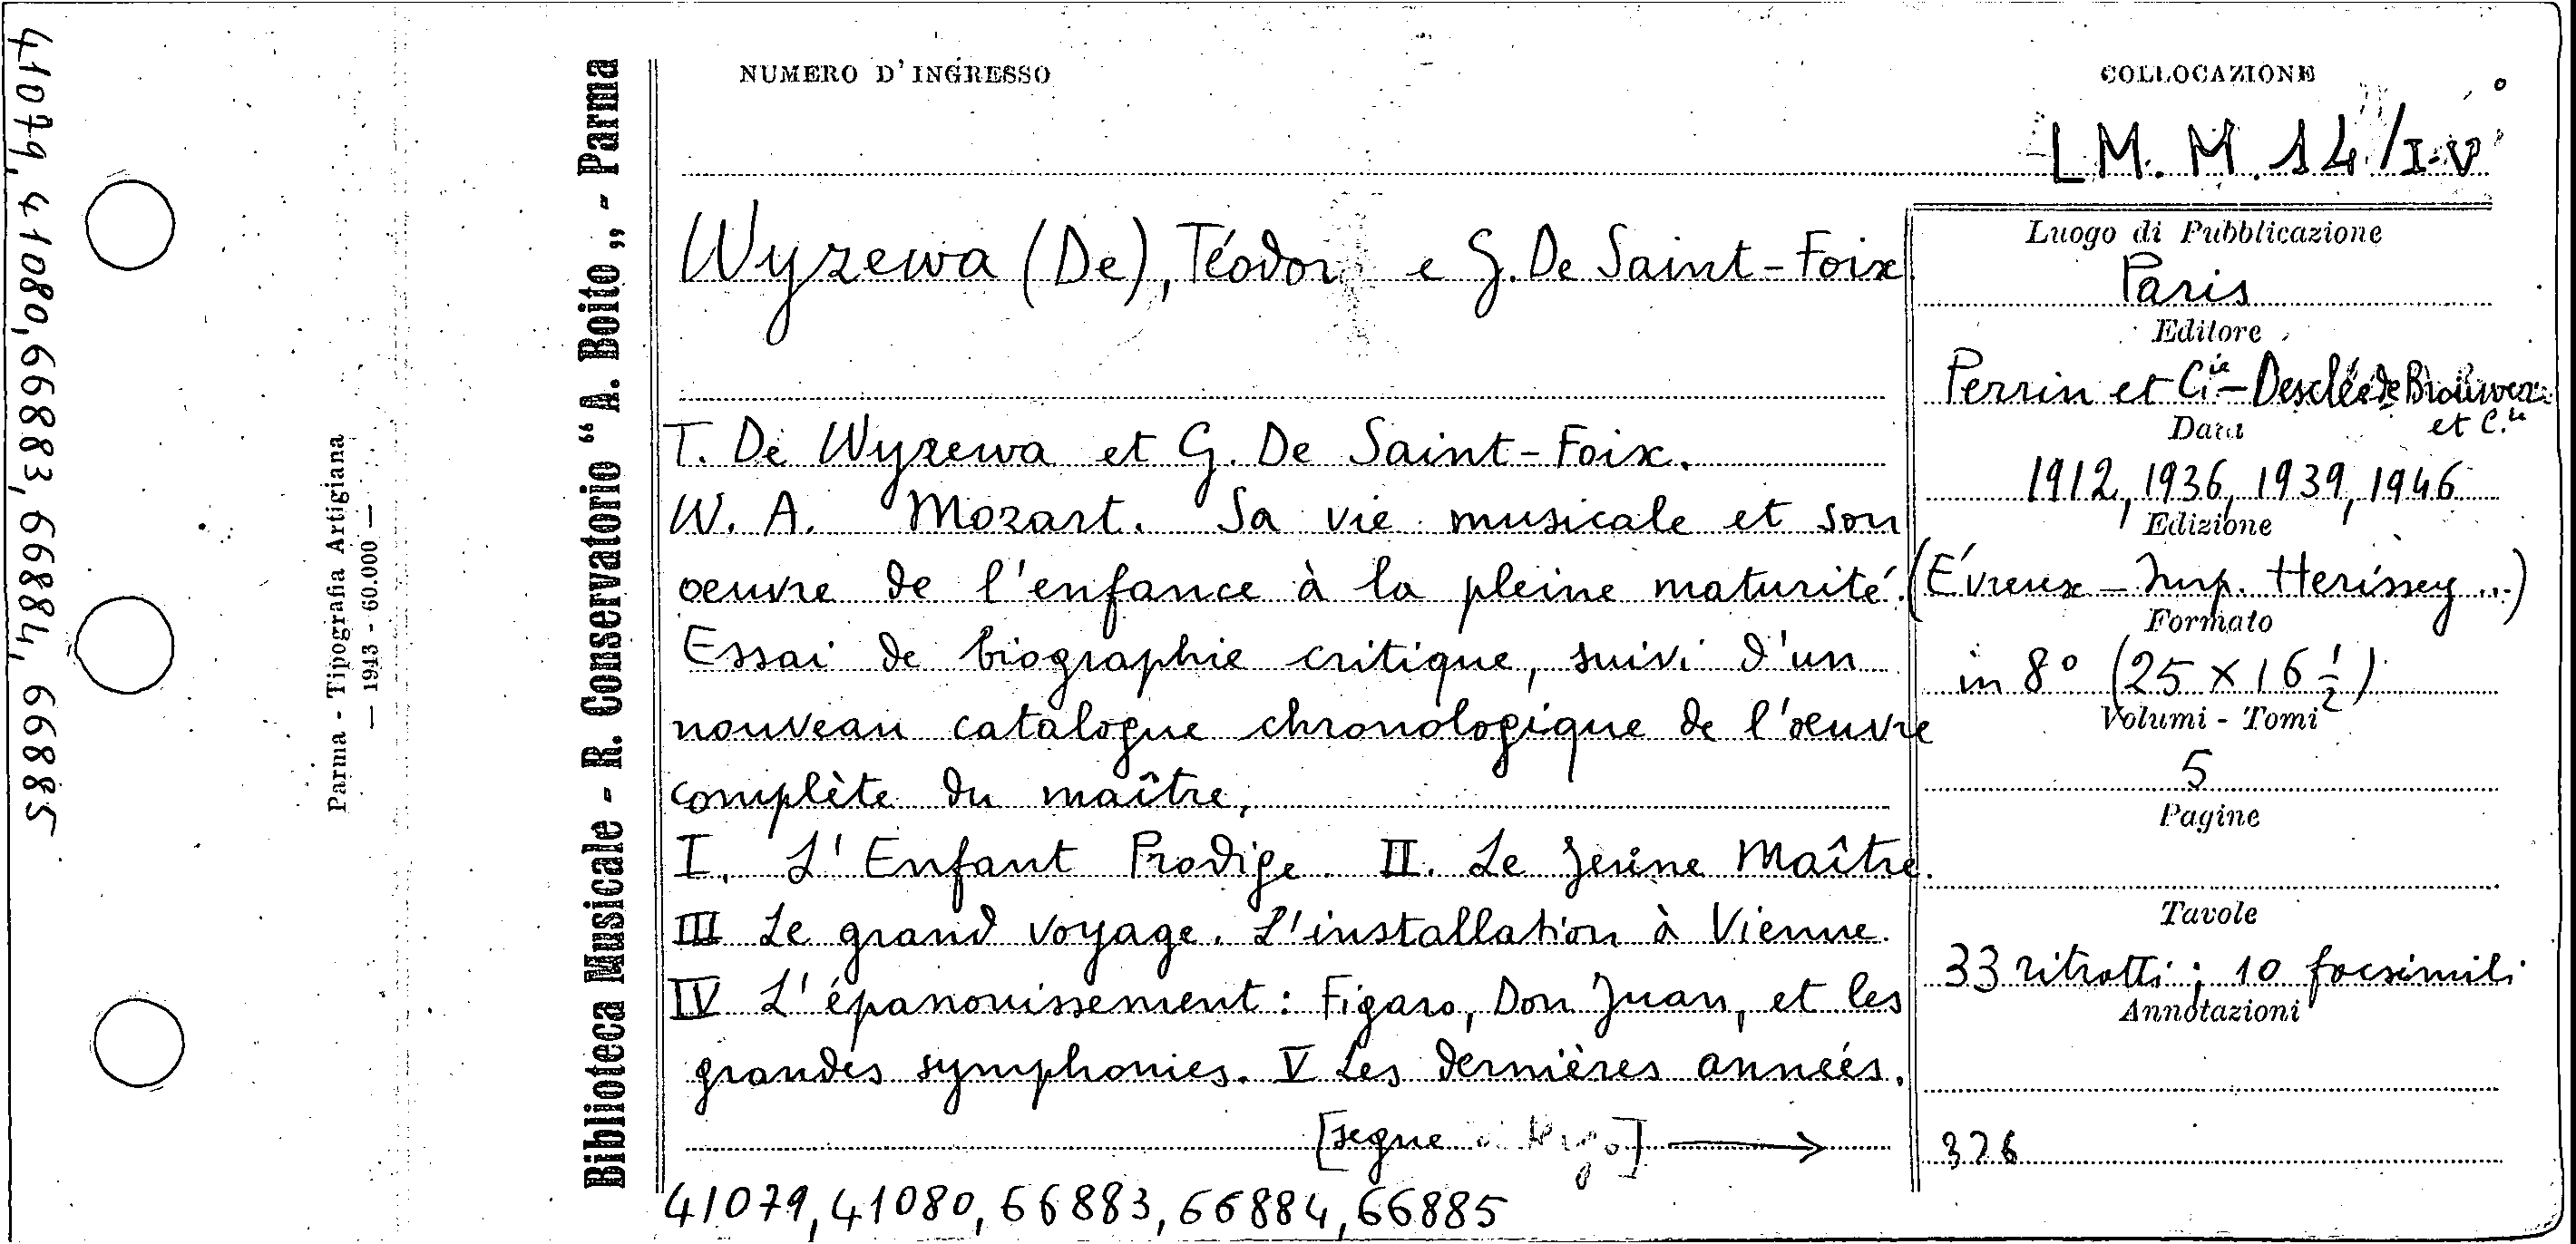 41079, 41080, 66883, 66884, 66885
Parma - Tipografia Artigiana
— 1943 - 60.000 —
Biblioteca Musicale - R. Conservatorio “A. Boito„ - Parma
NUMERO D'INGRESSO
COLLOCAZIONE
LM. M. 14/I-V
Wyzewa (De), Téodor e G. De Saint-Foix
T. De Wyzewa et G. De Saint-Foix.
W. A. Mozart. Sa vie musicale et son
oeuvre de l'enfance à la pleine maturité.
Essai de biographie critique, suivi d'un
nouveau catalogue chronologique de l'oeuvre
complète du maître,
I. L'Enfant Prodige. II. Le Jeune Maître.
III Le grand voyage. L'installation à Vienne.
IV L'épanouissement: Figaro, Don Juan, et les
grandes symphonies. V Les dernières années.
[segue
41079, 41080, 66883, 66884, 66885
Luogo di Pubblicazione
Paris
Editore
Perrin et Cie - Desclée de Brouwer
et C.ie
Data
1912, 1936, 1939, 1946
Edizione
(Évreux - Imp. Herissey...)
Formato
in 8° (25 x 16 1/2)
Volumi - Tomi
5
Pagine
Tavole
33 ritratti; 10 facsimili
Annotazioni
326